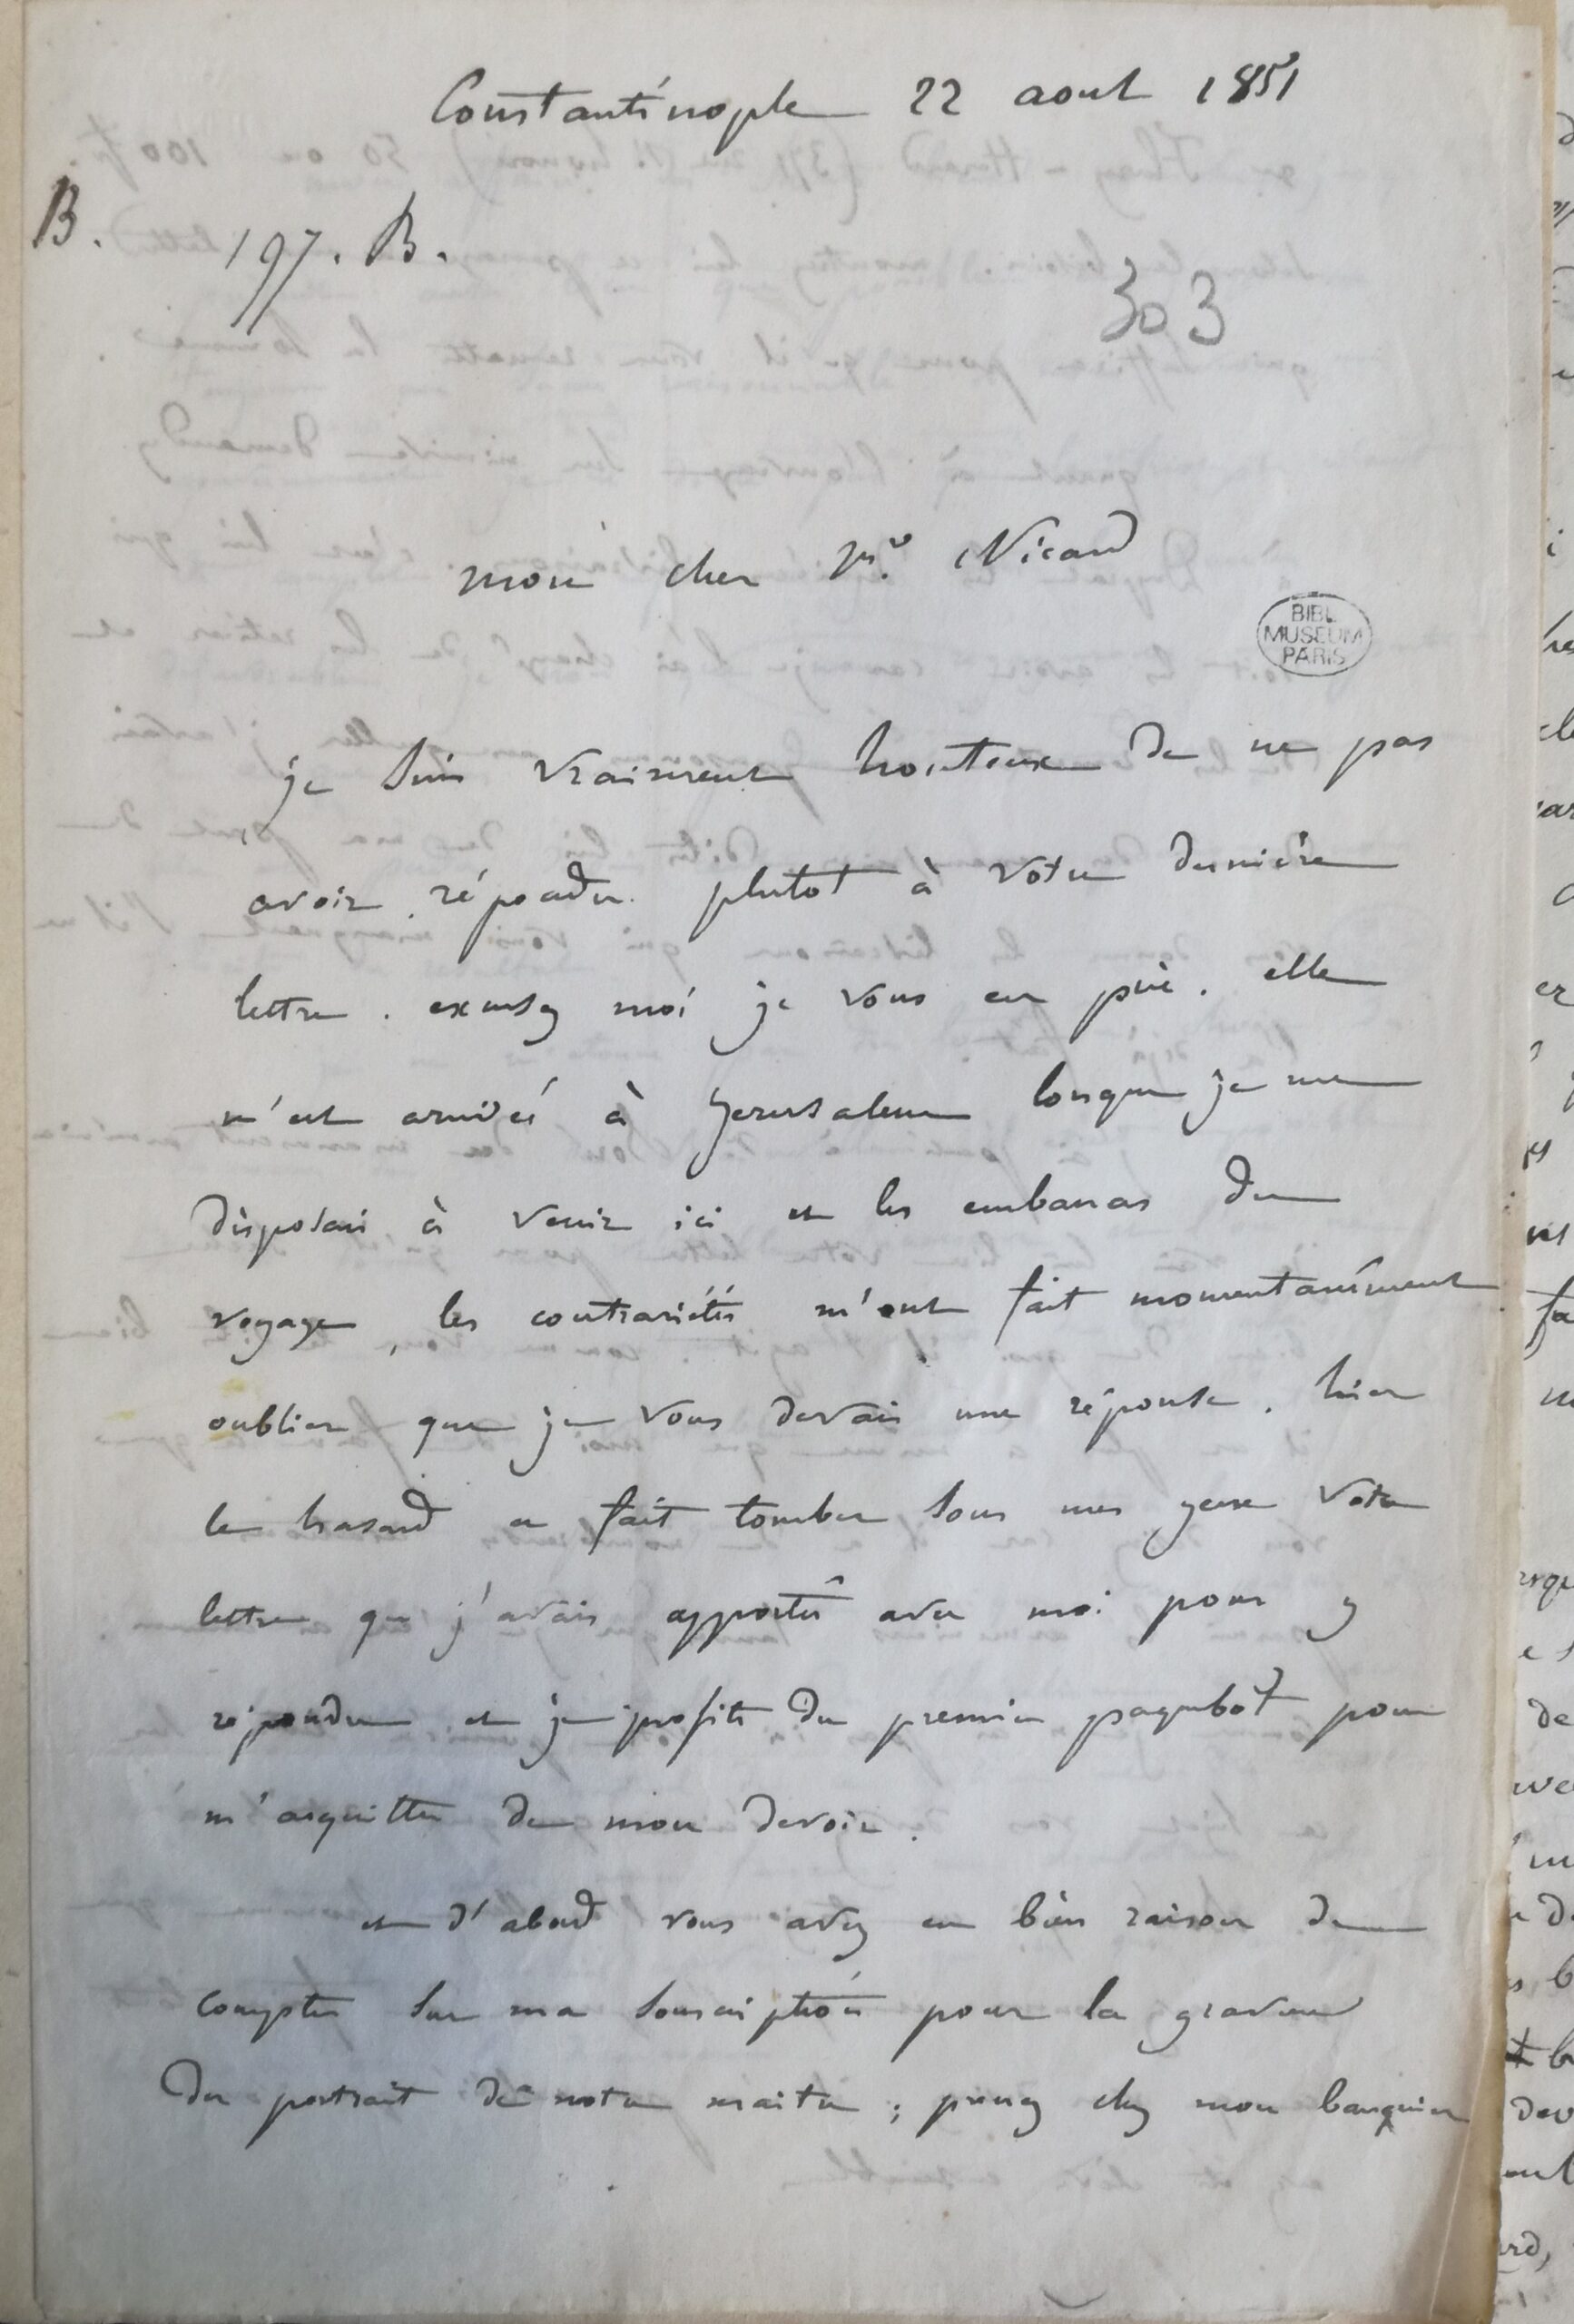 Constantinople 22 aout 1851
B. 197. B.
303
mon cher Mr. Nicard
BIBL
MUSEUM
PARIS
je suis vraiment honteux de ne pas
avoir répondu plutot à votre derniere
lettre. excusez moi je vous en prie. elle
m'est arrivée à Jerusalem lorsque je me
disposais à venir ici et les embarras du
voyage, les contrariétés m'ont fait momentanément
oublier que je vous devais une réponse. hier
le hasard a fait tomber sous mes yeux votre
lettre que j'avais apportée avec moi pour y
répondre et je profite du premier paquebot pour
m'acquitter de mon devoir.
et d'abord vous avez eu bien raison de
compter sur ma souscription pour la gravure
du portrait de notre maitre ; prenez chez mon banquier